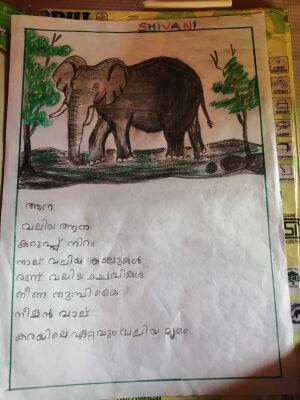 SHIVANI
ആന
വലിയ ആന
കറുപ്പ് നിറം
നാല് വലിയ കാലുകൾ
രണ്ട് വലിയ ചെവികൾ
നീണ്ട തുമ്പി കൈ
നീളൻ വാല്
കരയിലെ ഏറ്റവും വലിയ മൃഗം